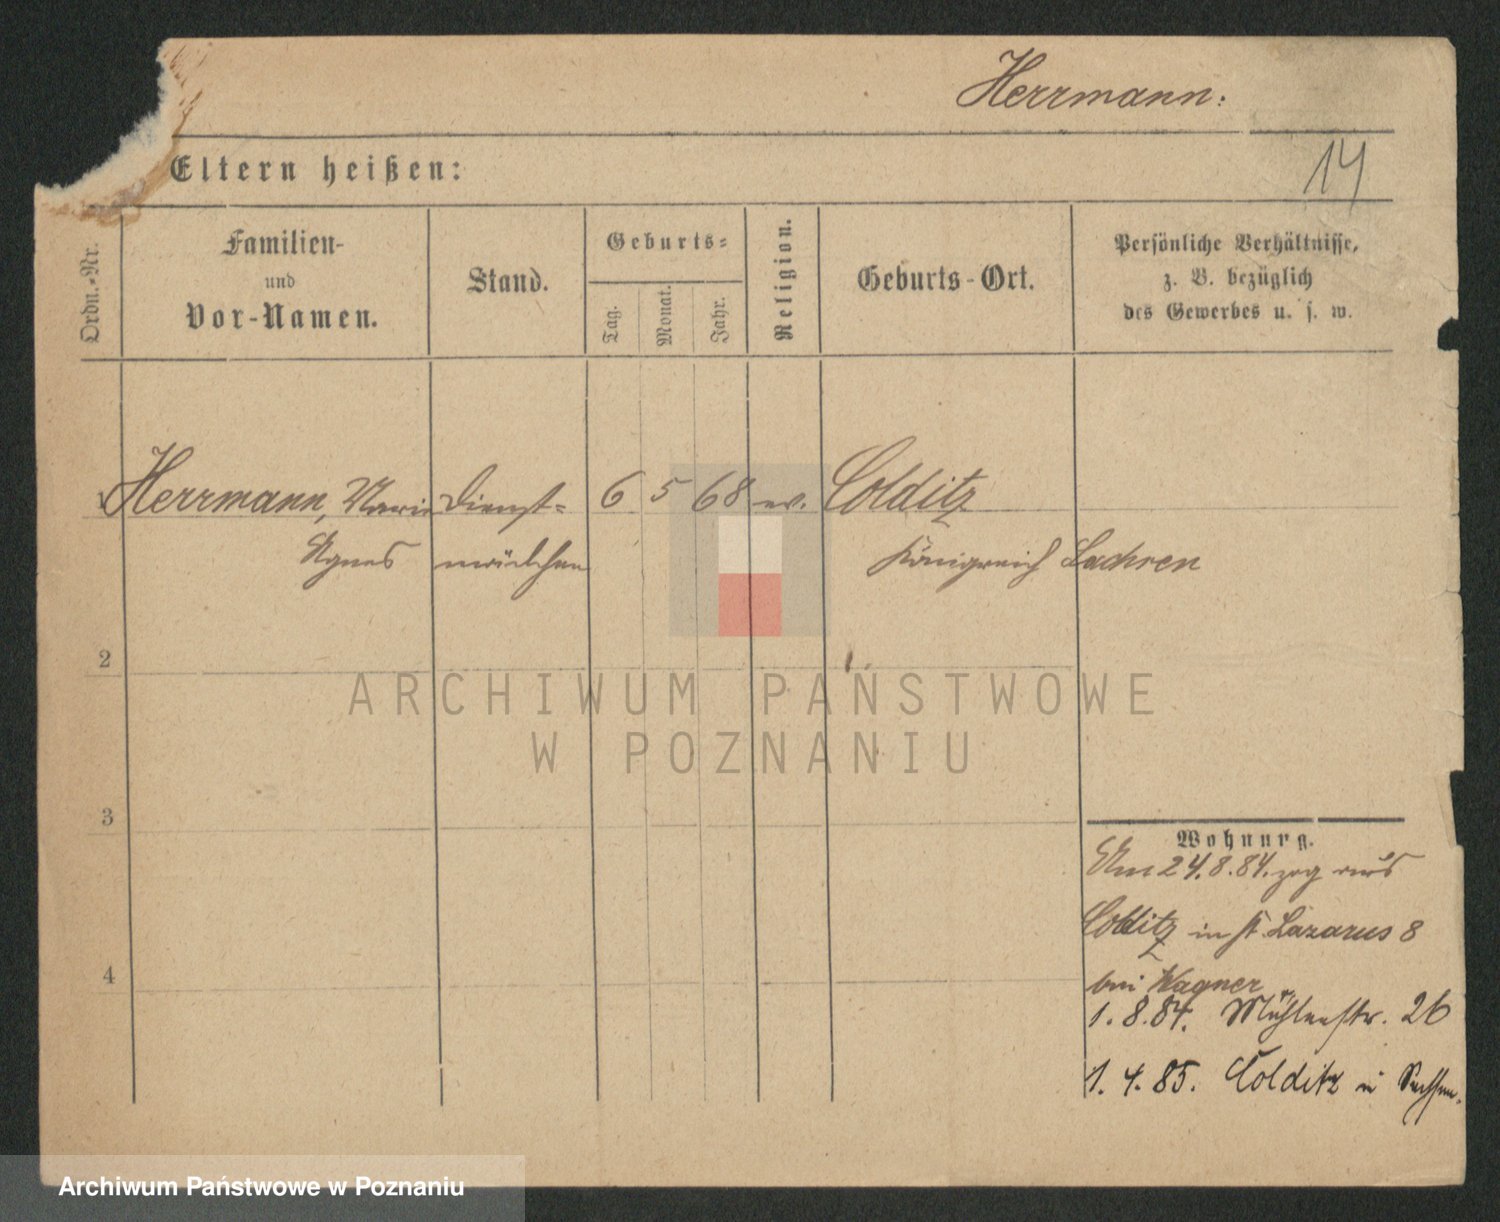 Herrmann:
14
Eltern heißen:
Ordn.-Nr.
Familien-
und
Vor-Namen.
Stand.
Geburts-
Tag.
Monat.
Jahr.
Religion.
Geburts-Ort.
Persönliche Verhältnisse,
z. B. bezüglich
des Gewerbes u. s. w.
1 Herrmann, Marie Dienst- 6 5 68 ev. Colditz
Agnes mädchen Königreich Sachsen
2
3
4
ARCHIWUM PAŃSTWOWE
W POZNANIU
Wohnung.
Am 24.8.84. zog aus
Colditz in St. Lazarus 8
bei Wagner
1.8.84. Mühlenstr. 26
1.4.85. Colditz i Sachsen.
Archiwum Państwowe w Poznaniu